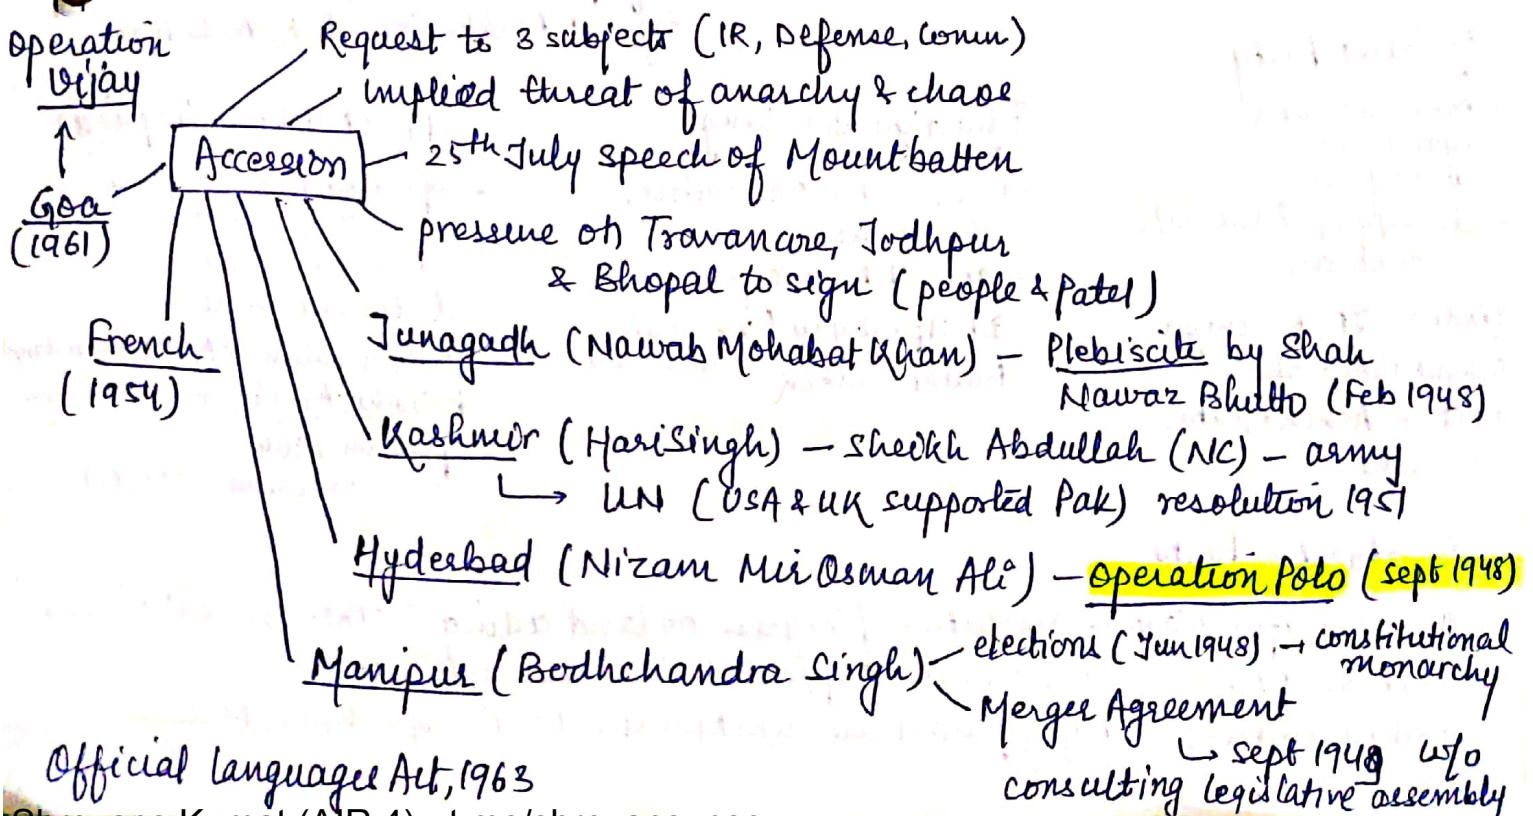 Operation
Vijay
Goa
(1961)
Accession
Request to 3 subjects (IR, Defense, Comm)
implied threat of anarchy & chaos
25th July speech of Mountbatten
pressure on Travancore, Jodhpur
& Bhopal to sign (people & Patel)
French
(1954)
Junagadh (Nawab Mohabat Khan) – Plebiscite by Shah
Nawaz Bhutto (Feb 1948)
Kashmir (Hari Singh) – Sheikh Abdullah (NC) – army
↳ UN (USA & UK supported Pak) resolution 1951
Hyderbad (Nizam Mir Osman Ali) – Operation Polo (Sept 1948)
Manipur (Bodhchandra Singh)
elections (Jun 1948) → constitutional
monarchy
Merger Agreement
↳ Sept 1949 w/o
consulting legislative assembly
Official Languages Act, 1963